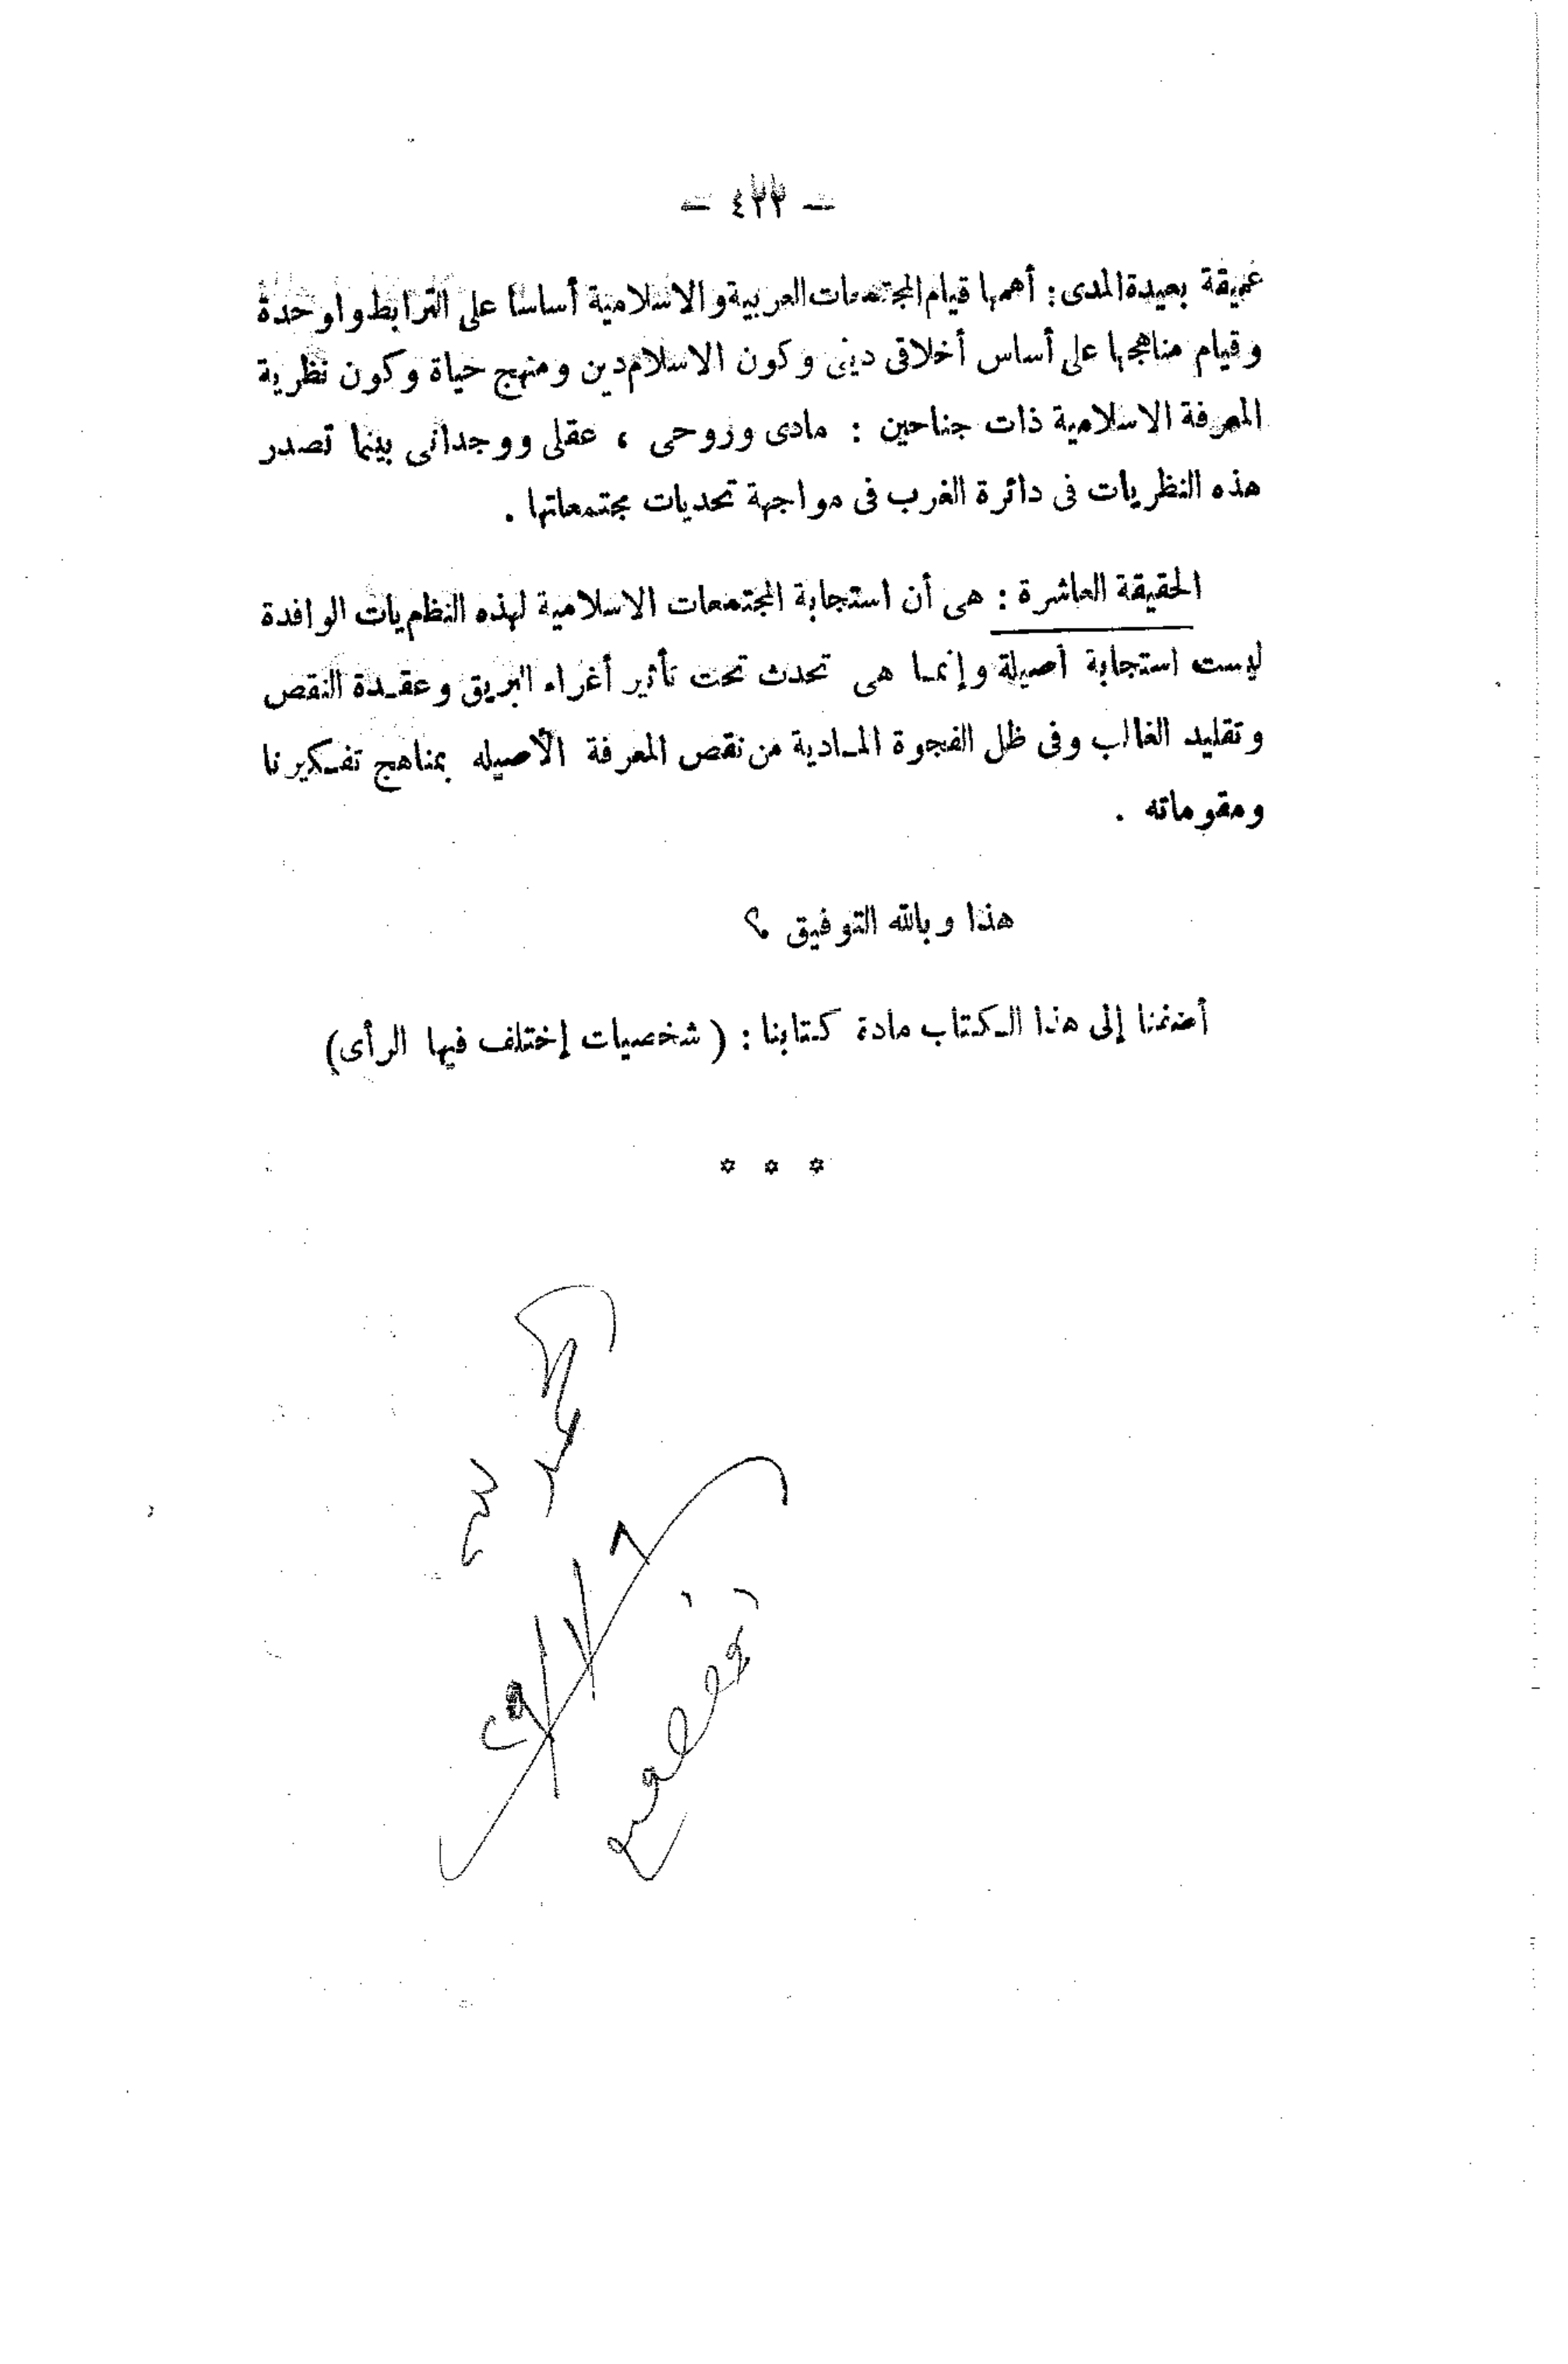 — ٤٢٢ —
عميقة بعيدة المدى : أهمها قيام المجتمعات العربية والاسلامية أساسا على الترابط واوحدة
وقيام مناهجها على أساس أخلاقى دينى وكون الاسلام دين ومنهج حياة وكون نظرية
المعرفة الاسلامية ذات جناحين : مادى وروحى ، عقلى ووجدانى بينما تصدر
هذه النظريات فى دائرة الغرب فى مواجهة تحديات مجتمعاتها .
الحقيقة العاشرة : هى أن استجابة المجتمعات الاسلامية لهذه النظريات الوافدة
ليست استجابة أصيلة وإنما هى تحدث تحت تأثير أغراء البريق وعقدة النقص
وتقليد الغالب وفى ظل الفجوة المادية من نقص المعرفة الأصيله بمناهج تفكيرنا
ومقوماته .
هذا وبالله التوفيق ؟
أضفنا إلى هذا الكتاب مادة كتابنا : ( شخصيات إختلف فيها الرأى )
* * *